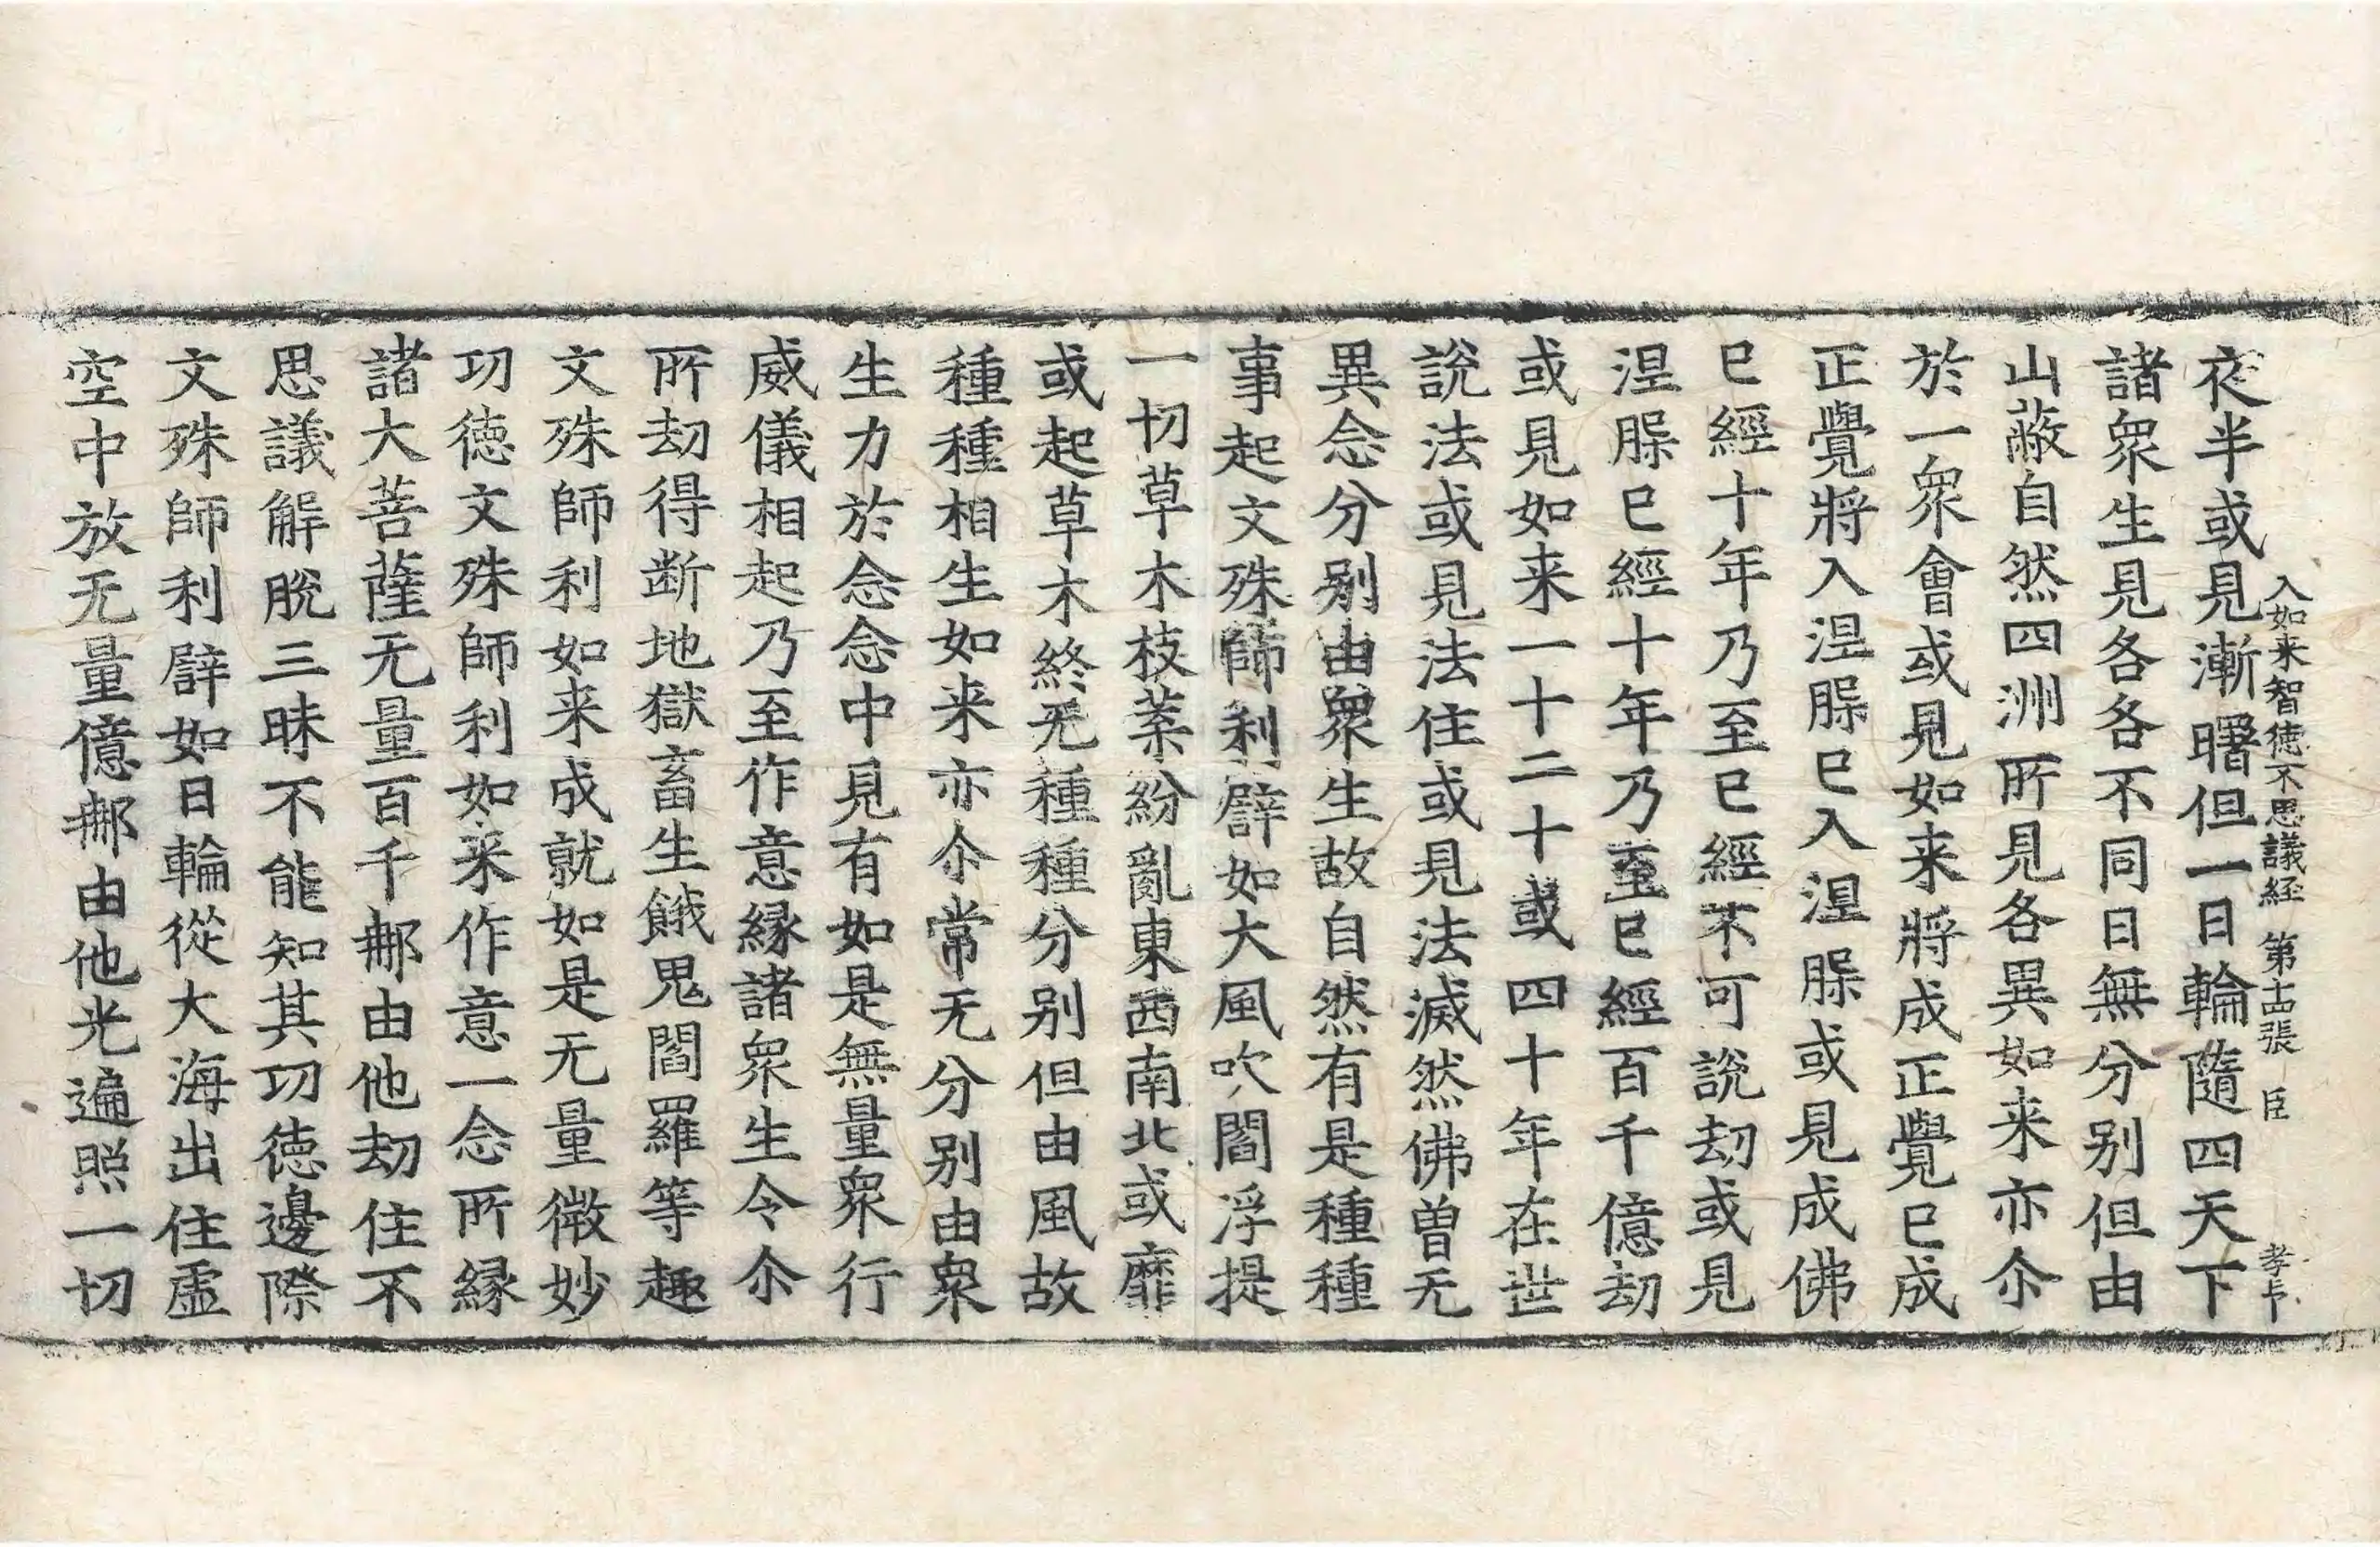 入如来智徳不思議経 第十四張 臣 孝卞
夜半或見漸曙但一日輪隨四天下
諸衆生見各各不同日無分別但由
山蔽自然四洲所見各異如来亦尒
於一衆會或見如来將成正覺已成
正覺將入涅槃已入涅槃或見成佛
已經十年乃至已經不可說劫或見
涅槃已經十年乃至已經百千億劫
或見如来一十二十或四十年在世
說法或見法住或見法滅然佛曾无
異念分別由衆生故自然有是種種
事起文殊師利譬如大風吹閻浮提
一切草木枝葉紛亂東西南北或靡
或起草木終无種種分别但由風故
種種相生如来亦尒常无分别由衆
生力於念念中見有如是無量衆行
威儀相起乃至作意縁諸衆生令尒
所劫得断地獄畜生餓鬼閻羅等趣
文殊師利如来成就如是无量微妙
功徳文殊師利如来作意一念所縁
諸大菩薩无量百千那由他劫住不
思議解脫三昧不能知其功徳邊際
文殊師利譬如日輪從大海出住虚
空中放无量億那由他光遍照一切